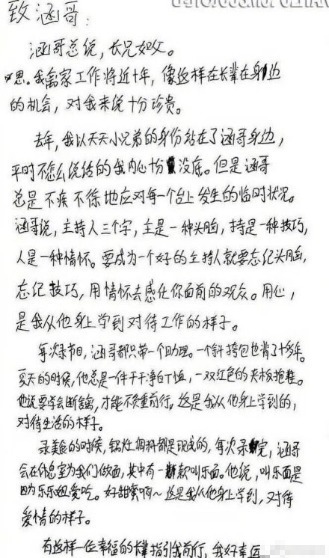 致涵哥：
涵哥总说，长兄如父。
思。我离家工作将近十年，像这样在长辈在身边
的机会，对我来说十分珍贵。
去年，我以天天小兄弟的身份站在了涵哥身边，
平时不怎么说话的我内心十分没底。但是涵哥
总是不疾不徐地应对每一个台上发生的临时状况。
涵哥说，主持人三个字，主是一种头脑，持是一种技巧，
人是一种情怀。要成为一个好的主持人就要忘记头脑，
忘记技巧，用情怀去感在你面前的观众。用心，
是我从他身上学到对待工作的样子。
每次录节目，涵哥都只带一个助理。一个斜挎包也背了十多年。
夏天的时候，他总是一件干干净白T恤，一双红色的夹板拖鞋。
他说要学会断舍离，才能不负重前行。这是我从他身上学到的，
对待生活的样子。
录美食的时候，锅灶调料都是现成的，每次录完，涵哥
会在休息室为我们做面，其中有一款叫乐面。他说，叫乐面是
因为乐乐姐爱吃。好甜蜜啊～这是我从他身上学到，对待
爱情的样子。
有这样一位幸福的长辈指引我前行，我好幸运